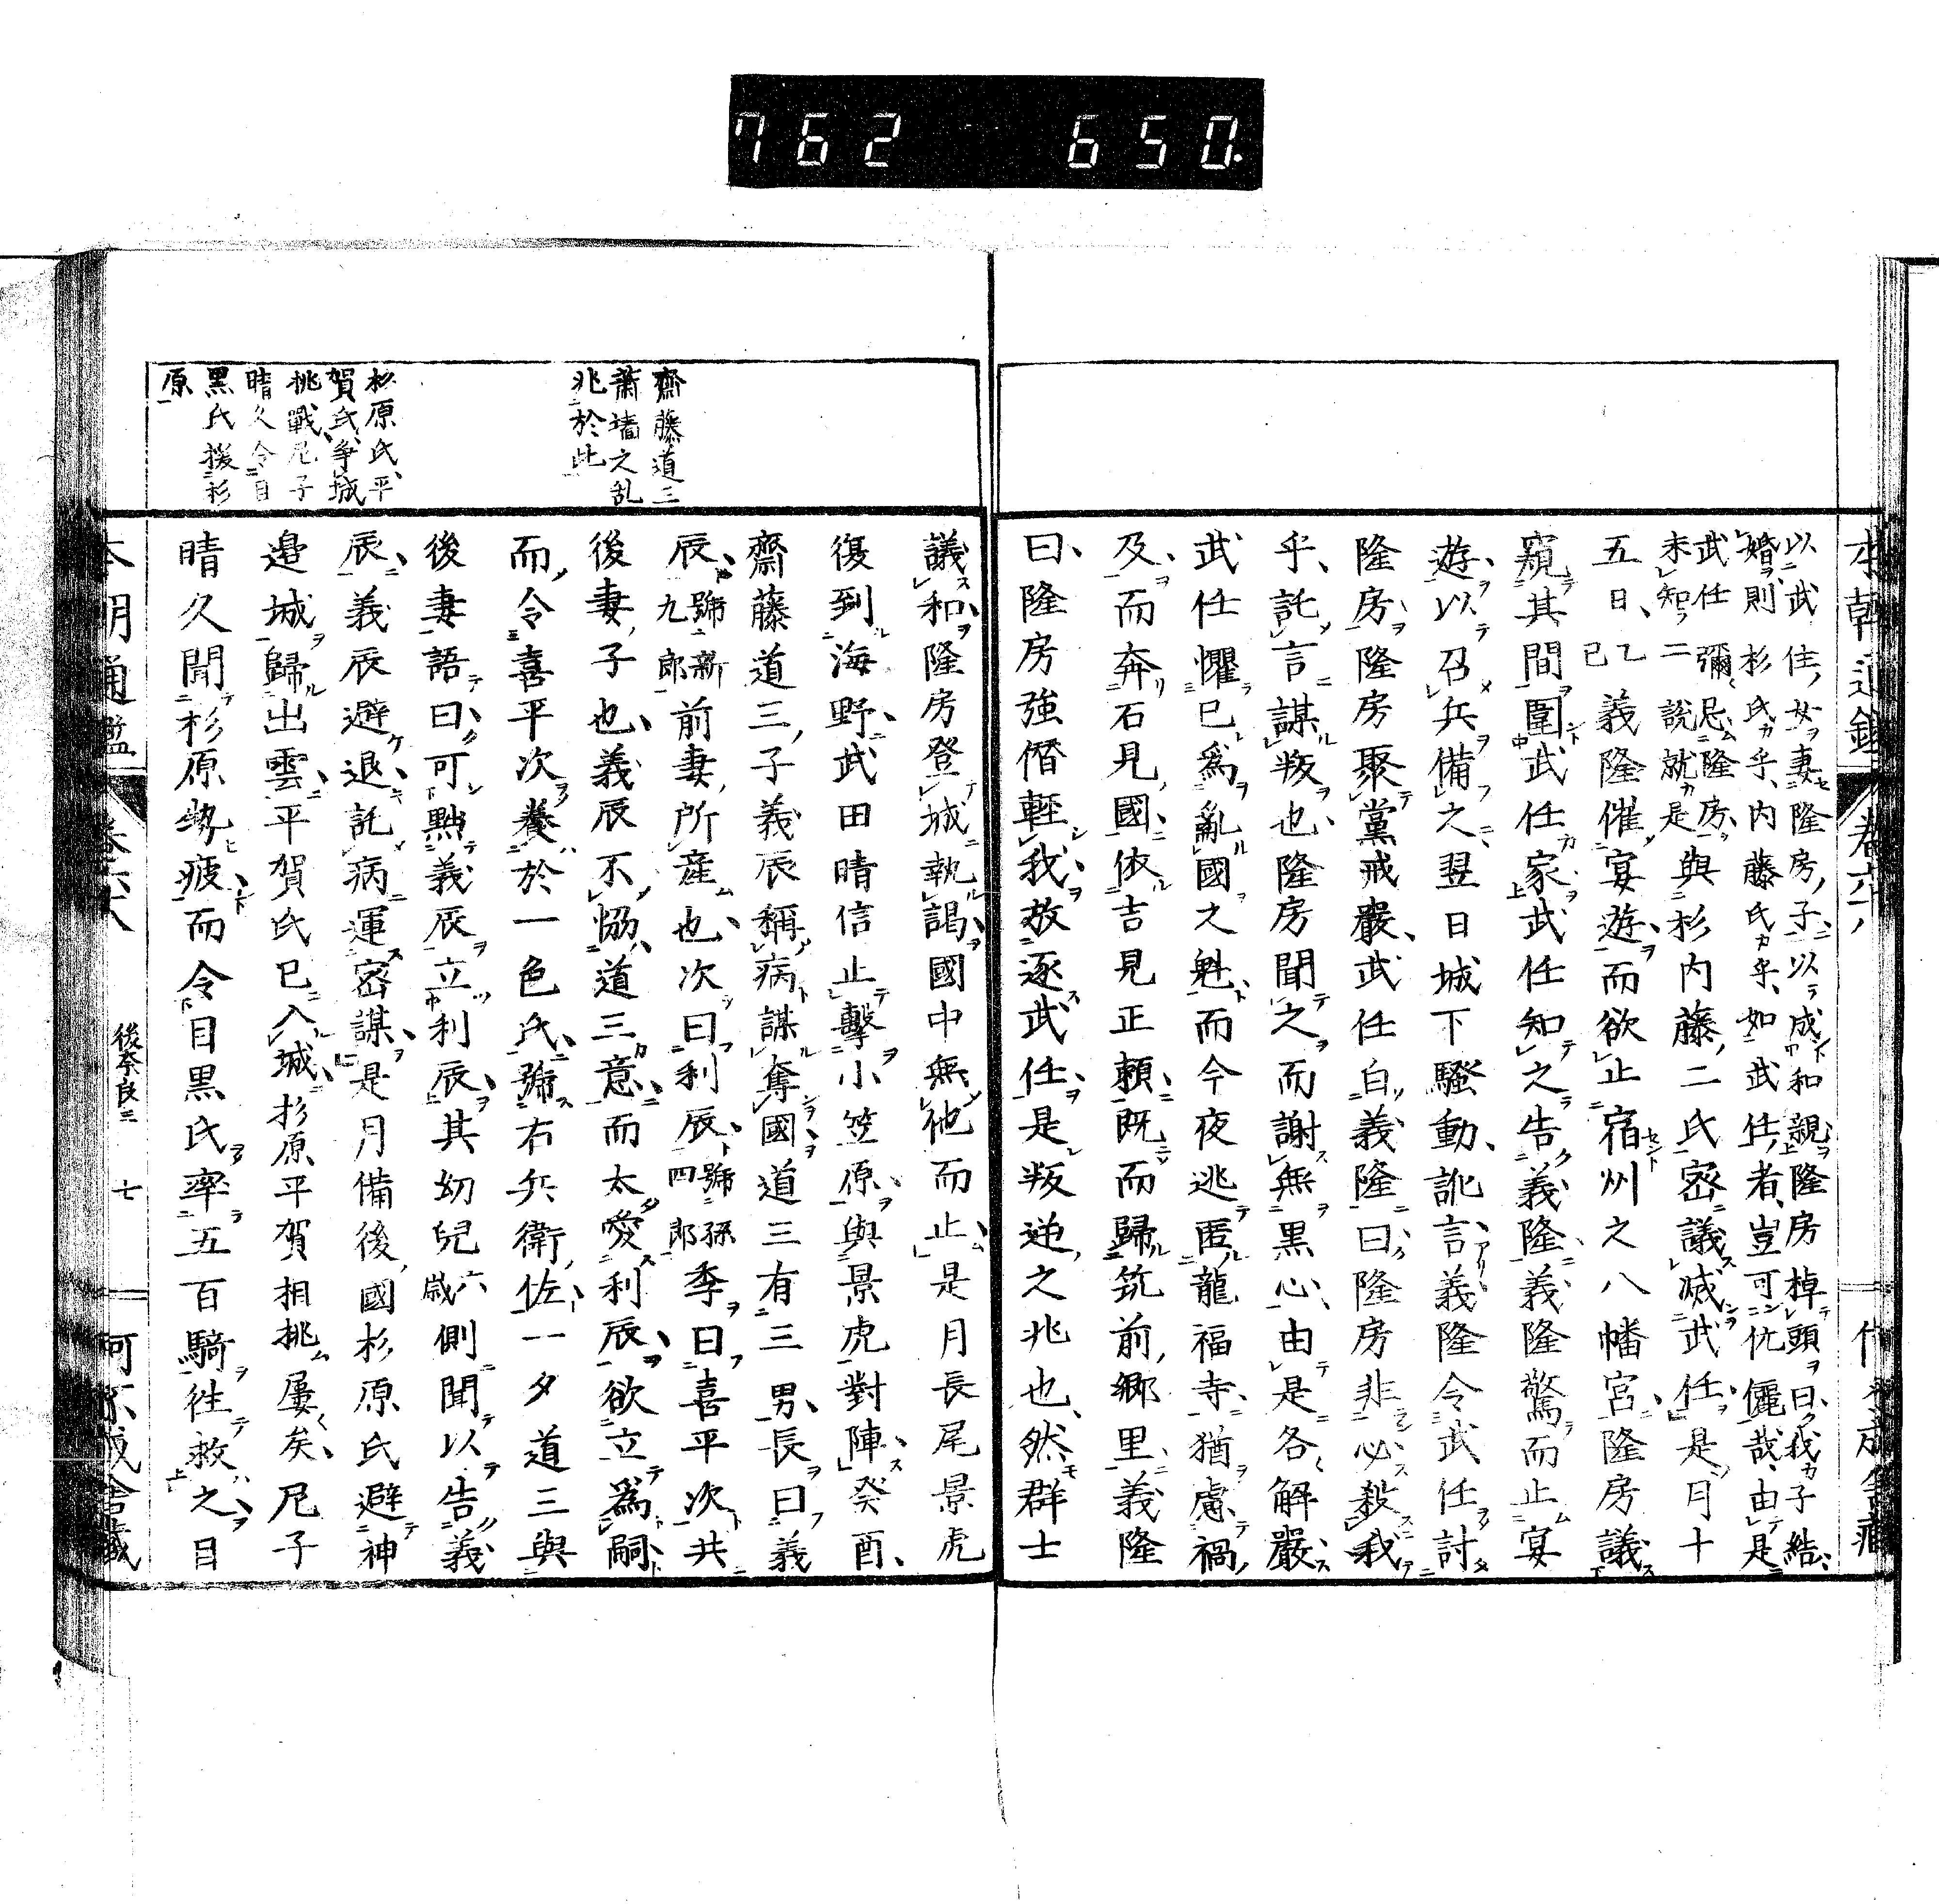 762 650.
以武任女妻隆房子以成和親隆房掉頭曰我子結
婚則杉氏乎内藤氏乎如武任者豈可伉儷哉由是
武任彌忌隆房
未知二説就是與杉内藤二氏密議滅武任是月十
五日乙巳義隆催宴遊而欲止宿州之八幡宮隆房議
窺其間圍武任家武任知之告義隆義隆驚而止宴
遊以召兵備之翌日城下騷動訛言義隆令武任討
隆房隆房聚黨戒嚴武任白義隆曰隆房非必殺我
乎託言謀叛也隆房聞之而謝無黒心由是各解嚴
武任懼已爲亂國之魁而今夜逃匿龍福寺猶慮禍
及而奔石見國依吉見正頼既而歸筑前郷里義隆
曰隆房強僭輕我放逐武任是叛逆之兆也然群士
議和隆房登城執謁國中無他而止是月長尾景虎
復到海野武田晴信止擊小笠原與景虎對陣癸酉
齋藤道三子義辰稱病謀奪國道三有三男長曰義
辰號新九郎前妻所産也次曰利辰號孫四郎季曰喜平次共
後妻子也義辰不恊道三意而太愛利辰欲立爲嗣
而令喜平次養於一色氏號右兵衛佐一夕道三與
後妻語曰可黜義辰立利辰其幼兒六歳側聞以告義
辰義辰避退託病運密謀是月備後國杉原氏避神
邊城歸出雲平賀氏已入城杉原平賀相挑屢矣尼子
晴久聞杉原勢疲而令目黒氏率五百騎往救之目
齋藤道三
蕭墻之乱
兆於此
杉原氏平
賀氏争城
挑戰尼子
晴久令目
黒氏援杉
原
本朝通鑑 卷六十八 後奈良三 七